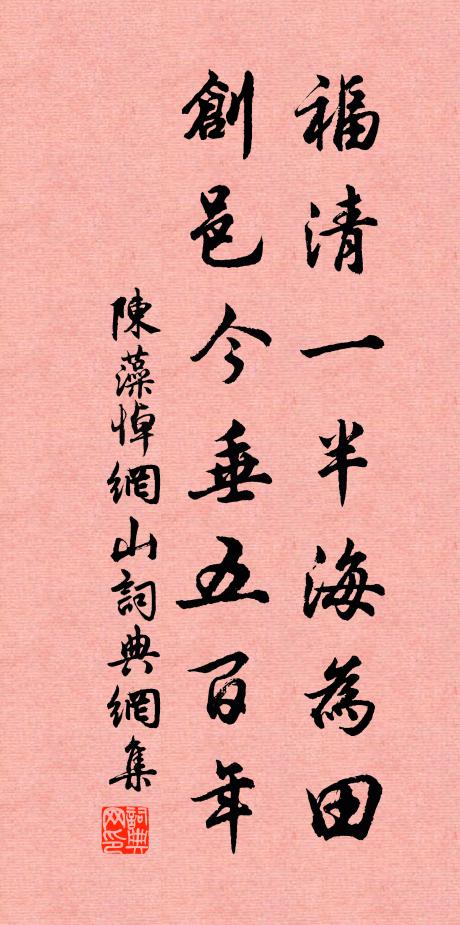 福清一半海為田
創邑今垂五百年
陳藻悼網山詞典網集
詞典网印